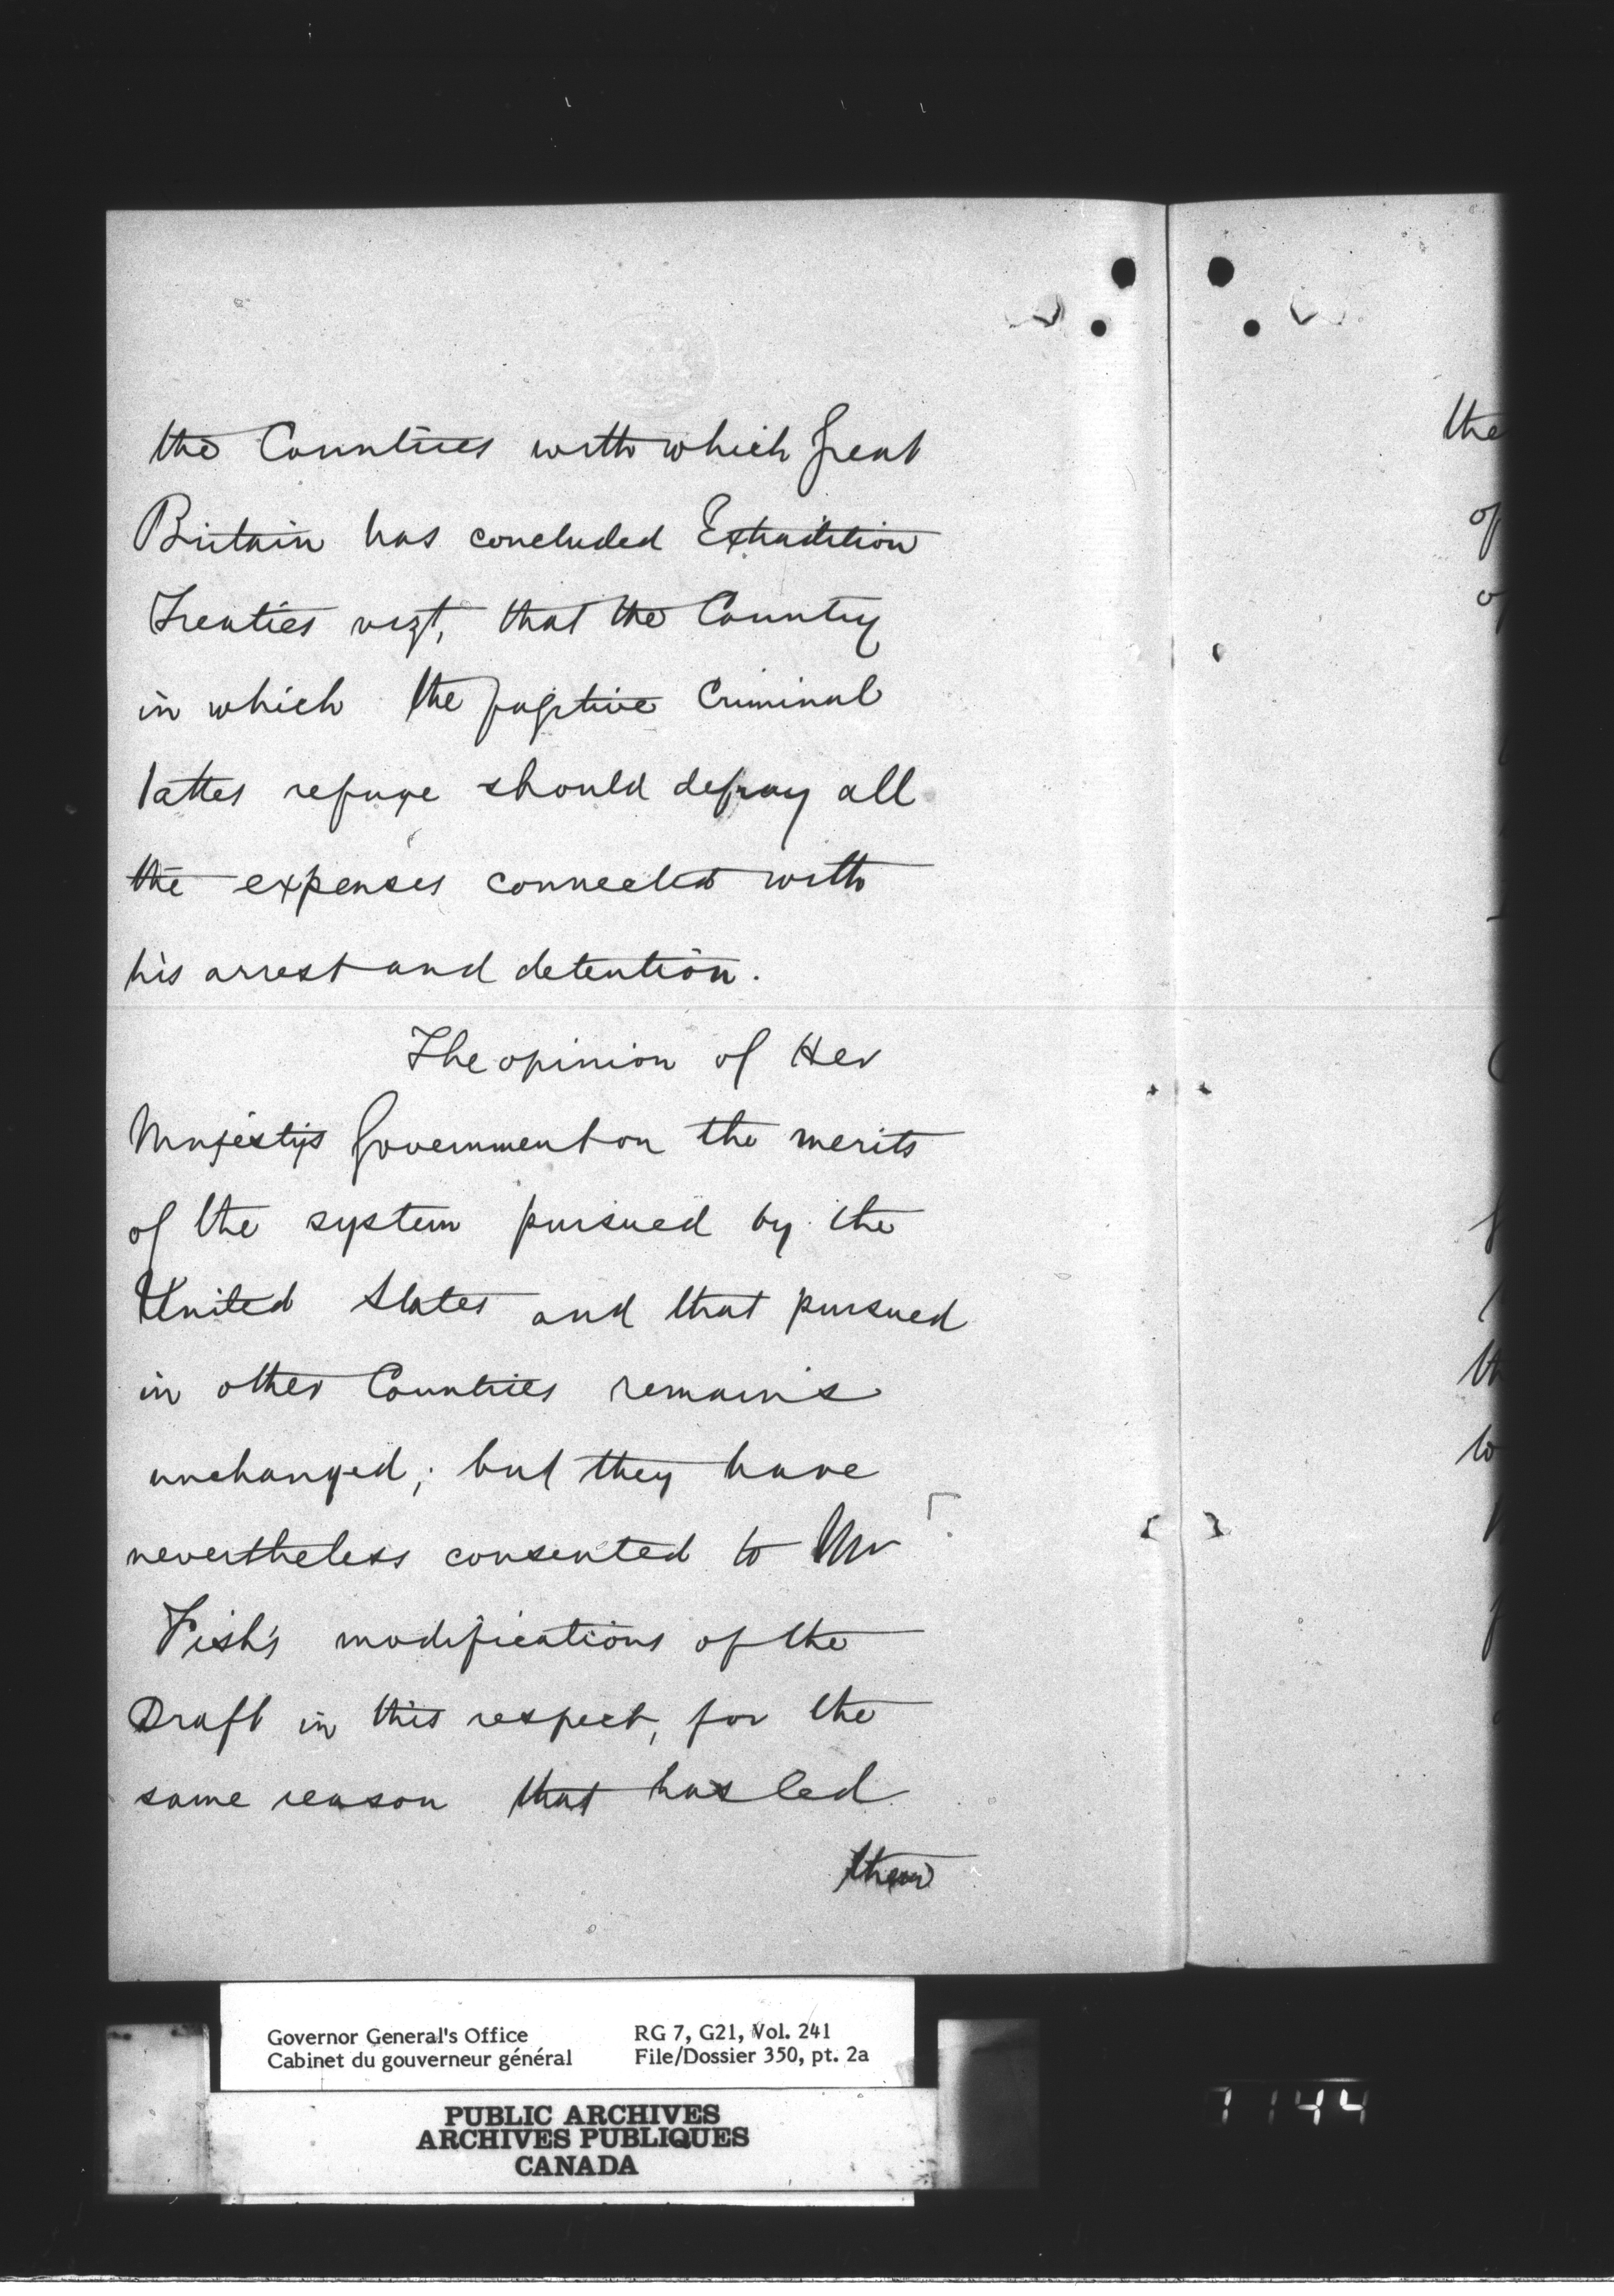 the Countries with which Great
Britain has concluded Extradition
Treaties vizt, that the Country
in which the fugitive Criminal
takes refuge should defray all
the expenses connected with
his arrest and detention.
The opinion of Her
Majesty's Government on the merits
of the system pursued by the
United States and that pursued
in other Countries remains
unchanged; but they have
nevertheless consented to Mr
Fish's modifications of the
Draft in this respect, for the
same reason that has led
them
the
of
Governor General's Office
Cabinet du gouverneur général
RG 7, G21, Vol. 241
File/Dossier 350, pt. 2a
PUBLIC ARCHIVES
ARCHIVES PUBLIQUES
CANADA
7144